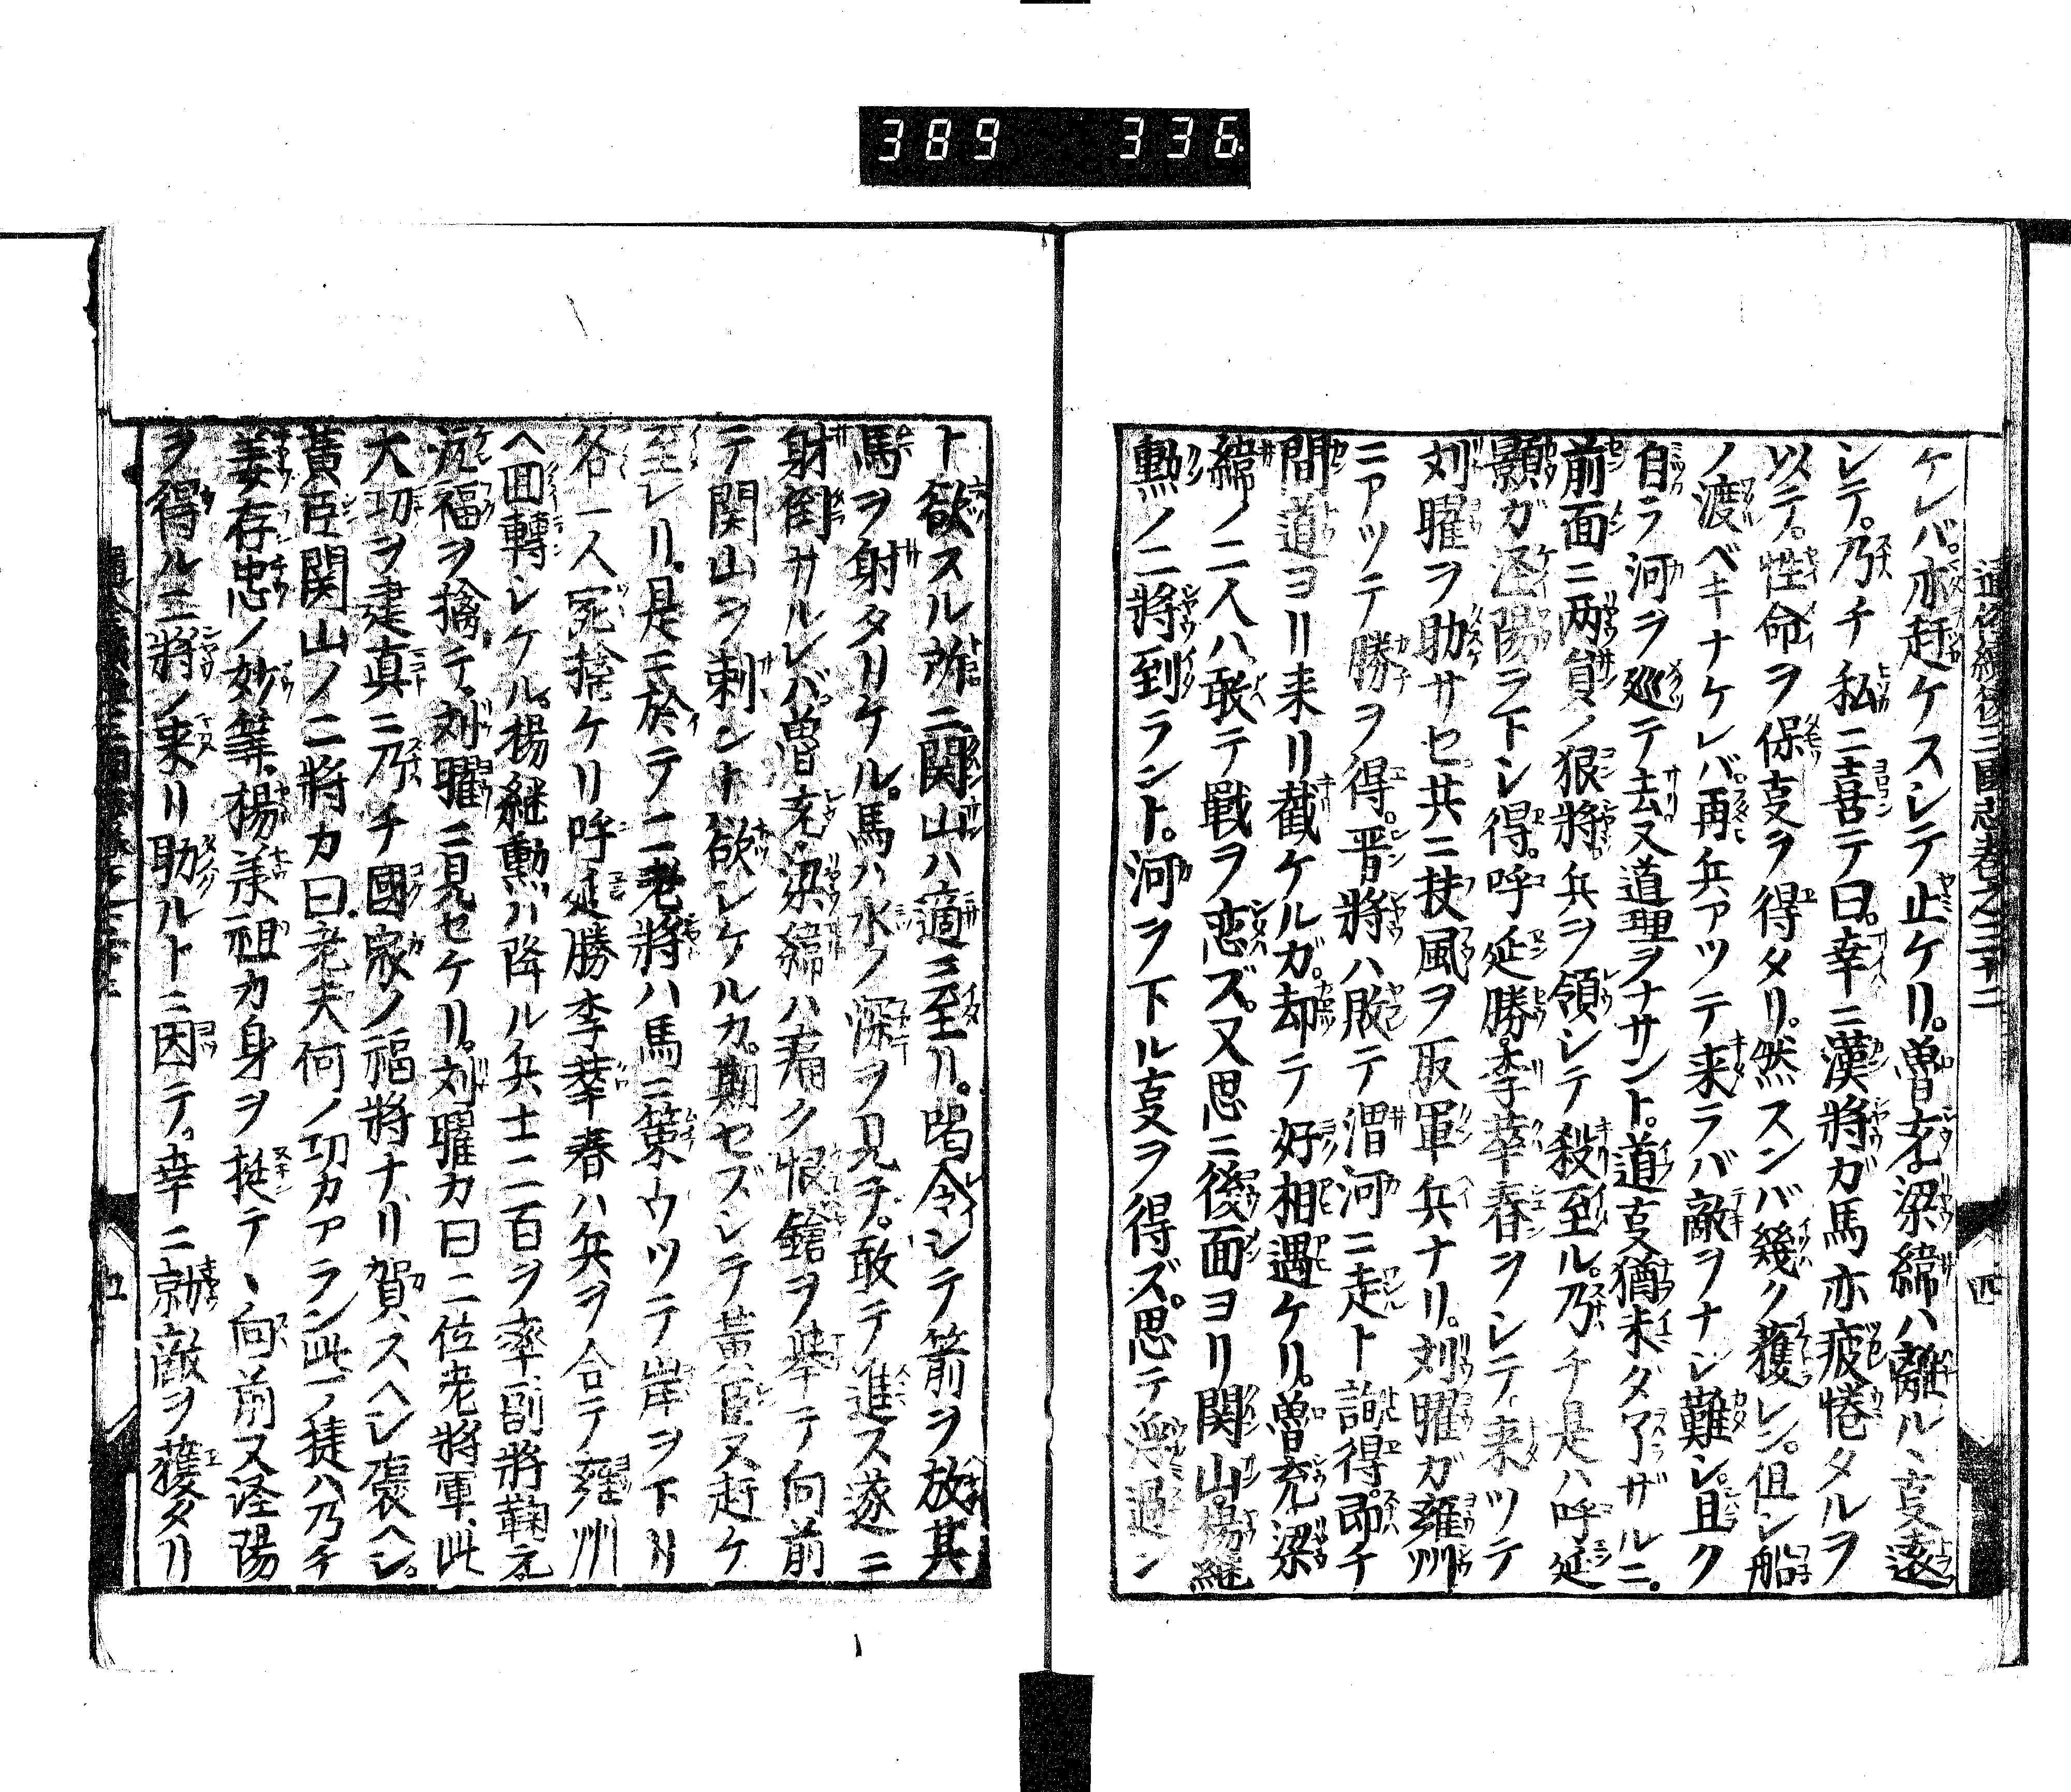 389 336
通俗續後三國志巻之二十二
ケレバ。亦赶ケスレテ止ケリ。曽充梁緯ハ離ルヽ叓遠
シテ。乃チ私ニ喜テ曰。幸ニ漢將ガ馬亦疲惓タルヲ
以テ。性命ヲ保叓ヲ得タリ。然スンバ幾ク獲レン。但シ船
ノ渡ベキナケレバ。再兵アツテ来ラバ敵ヲナシ難シ。且ク
自ラ河ヲ巡テ去又道理ヲナサント。道叓猶未ダ了ザルニ。
前面ニ两員ノ狠將。兵ヲ領シテ殺至ル。乃チ是ハ呼延
顥ガ涇陽ヲ下シ得。呼延勝。李華春ヲシテ来ツテ
刘曜ヲ助サセ共ニ扶風ヲ取軍兵ナリ。刘曜ガ雍州
ニアツテ勝ヲ得。晋將ハ敗テ渭河ニ走ト訶得。即チ
間道ヨリ来リ截ケルガ。却テ好相遇ケリ。曽充梁
緯ノ二人ハ。敢テ戰ヲ恋ズ。又思ニ後面ヨリ関山。楊継
勲ノ二將到ラント。河ヲ下ル叓ヲ得ズ。思テ浮過ン
ト欲スル所ニ関山ハ適ニ至リ。喝令シテ箭ヲ放其
馬ヲ射タリケル。馬ハ水ノ深ヲ見テ。敢テ進ス遂ニ
射倒サルレバ。曽充。梁緯ハ痛ク恨鎗ヲ挙テ向前
テ関山ヲ刺ント欲レケルカ。期セズシテ黄臣又赶ケ
至レリ。是ニ於テ二老將ハ馬ニ策ウツテ岸ヲ下リ
各一人宛捨ケリ呼延勝李華春ハ兵ヲ合テ雍州
ヘ回轉レケル。楊継勲ハ降ル兵士二百ヲ率副將鞠元
沅福ヲ擒テ。刘曜ニ見セケリ。刘曜カ曰二位老將軍、此
大功ヲ建真ニ乃チ國家ノ福將ナリ賀スヘシ褒ヘシ。
黄臣関山ノ二將カ曰。老夫何ノ功カアラン此ノ徒ハ乃チ
姜存忠ノ妙筭、楊継祖カ身ヲ挺テヽ向前又涇陽
ヲ得ル二將ノ来リ助ルトニ因テ。幸ニ勍敵ヲ獲タリ
五
四